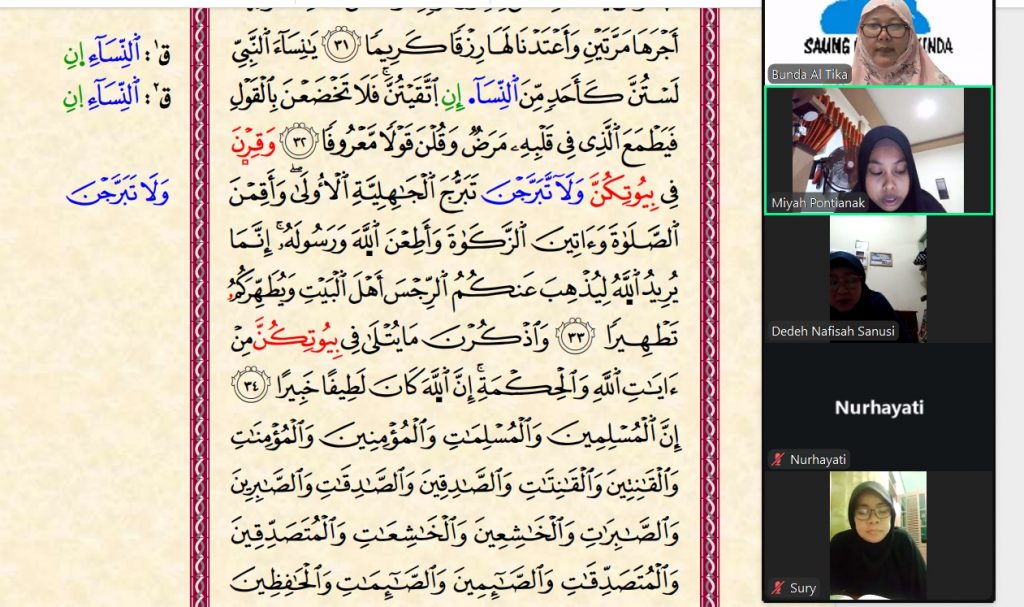 أَجْرَهَا مَرَّتَيْنِ وَأَعْتَدْنَا لَهَا رِزْقًا كَرِيمًا ٣١ يَٰنِسَآءَ اَلنَّبِيِّ
لَسْتُنَّ كَأَحَدٍ مِّنَ اَلنِّسَآءِ إِنِ اِتَّقَيْتُنَّ فَلَا تَخْضَعْنَ بِالْقَوْلِ
فَيَطْمَعَ اَلَّذِى فِى قَلْبِهِۦ مَرَضٌ وَقُلْنَ قَوْلًا مَّعْرُوفًا ٣٢ وَقِرْنَ
فِى بِيُوتِكُنَّ وَلَآ تَّبَرَّجْنَ تَبَرُّجَ اَلْجَٰهِلِيَّةِ اِلْأُولَىٰ وَأَقِمْنَ
اَلصَّلَوٰةَ وَءَاتِينَ اَلزَّكَوٰةَ وَأَطِعْنَ اَللَّهَ وَرَسُولَهُۥ إِنَّمَا
يُرِيدُ اُللَّهُ لِيُذْهِبَ عَنكُمُ اُلرِّجْسَ أَهْلَ اَلْبَيْتِ وَيُطَهِّرَكُمُۥ
تَطْهِيرًا ٣٣ وَاَذْكُرْنَ مَا يُتْلَىٰ فِى بِيُوتِكُنَّ مِنْ
ءَايَٰتِ اِللَّهِ وَالْحِكْمَةِ إِنَّ اَللَّهَ كَانَ لَطِيفًا خَبِيرًا ٣٤
إِنَّ اَلْمُسْلِمِينَ وَالْمُسْلِمَٰتِ وَالْمُؤْمِنِينَ وَالْمُؤْمِنَٰتِ
وَالْقَٰنِتِينَ وَالْقَٰنِتَٰتِ وَالصَّٰدِقِينَ وَالصَّٰدِقَٰتِ وَالصَّٰبِرِينَ
وَالصَّٰبِرَٰتِ وَالْخَٰشِعِينَ وَالْخَٰشِعَٰتِ وَالْمُتَصَدِّقِينَ
وَالْمُتَصَدِّقَٰتِ وَالصَّٰٓئِمِينَ وَالصَّٰٓئِمَٰتِ وَالْحَٰفِظِينَ
ق١: اَلنِّسَآءِ انِ
ق٢: اَلنِّسَآءِ انِ
وَلَا تَبَرَّجْنَ
SAUNG
Bunda Al Tika
Miyah Pontianak
Dedeh Nafisah Sanusi
Nurhayati
Nurhayati
Sury